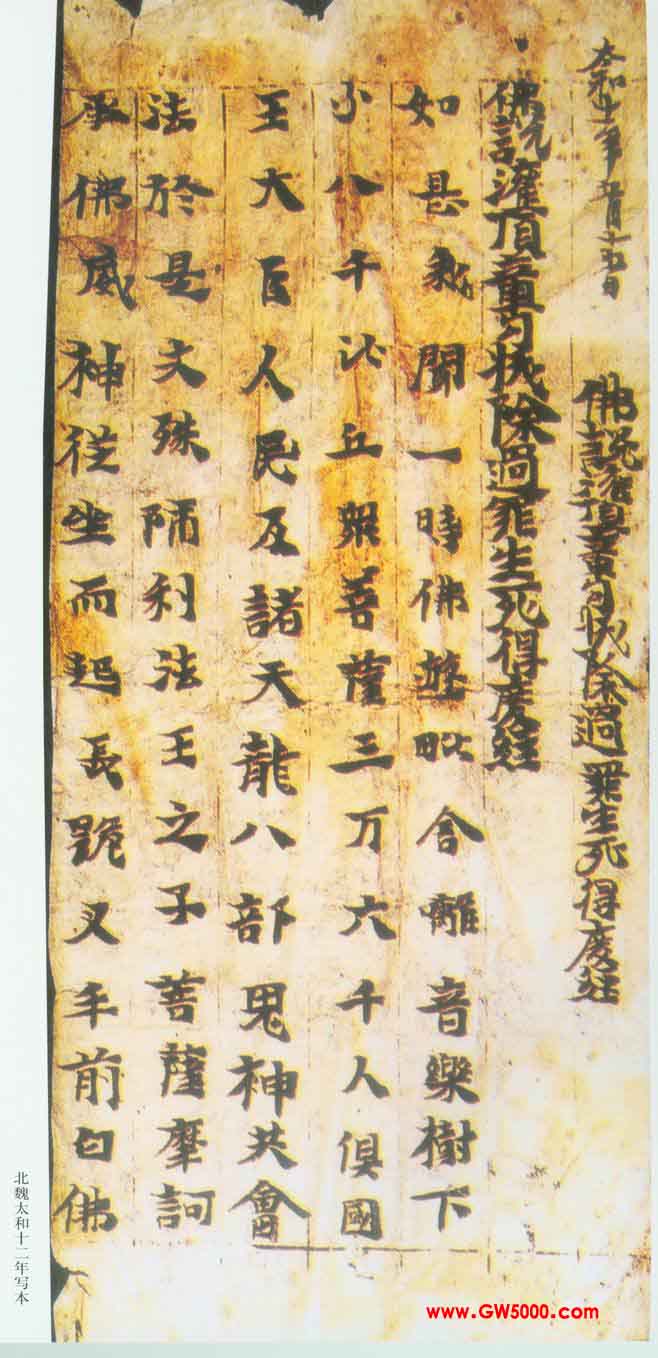 太和十二年五月十五日
佛說灌頂章句拔除過罪生死得度經
佛說灌頂章句拔除過罪生死得度經
如是我聞一時佛遊毗舍離音樂樹下
与八千比丘衆菩薩三万六千人俱國
王大臣人民及諸天龍八部鬼神共會
法於是文殊師利法王之子菩薩摩訶
承佛威神從坐而起長跪叉手前白佛
北魏太和十二年写本
www.GW5000.com